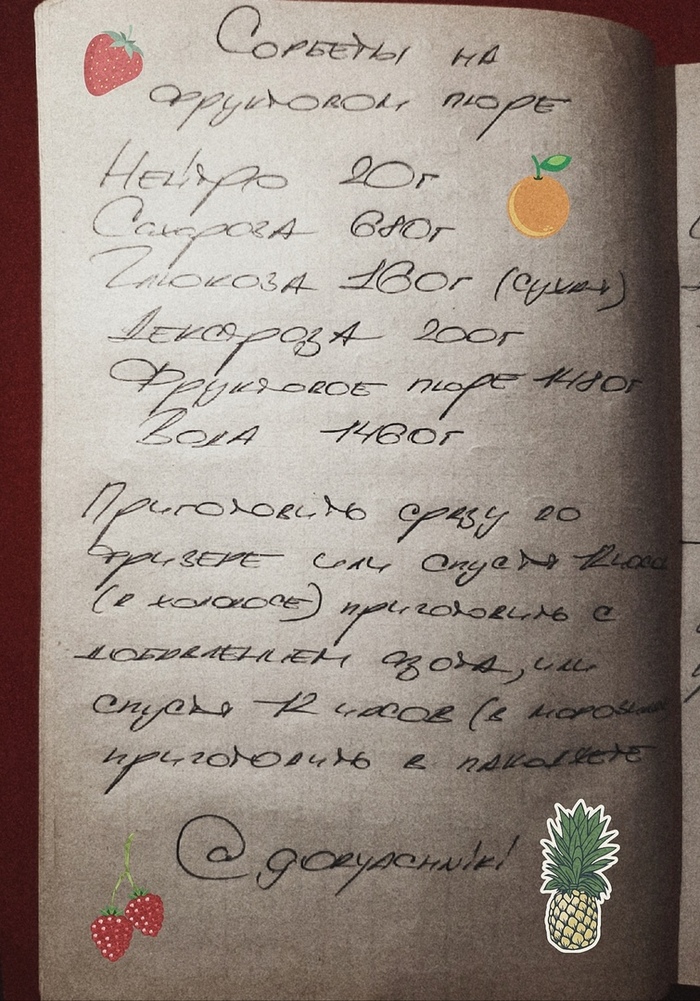 Сорбеты на
фруктовом пюре
Нейтро 20г
Сахароза 680г
Глюкоза 160г (сухая)
Декстроза 200г
Фруктовое пюре 1480г
Вода 1460г
Приготовить сразу во
фризере или спустя 12 часов
(в холоде) приготовить с
добавлением азота, или
спустя 12 часов (в морозилке
приготовить в пакоджете
@goryachniki